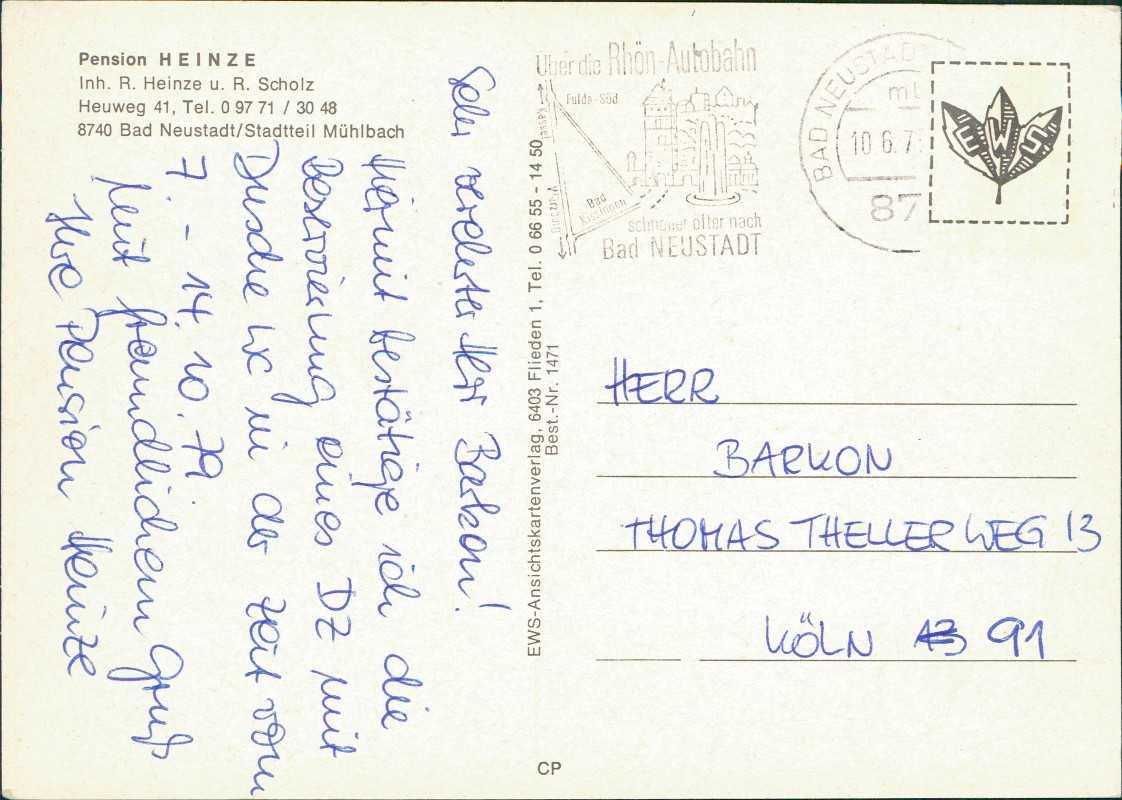 Pension HEINZE
Inh. R. Heinze u. R. Scholz
Heuweg 41, Tel. 0 97 71 / 30 48
8740 Bad Neustadt/Stadtteil Mühlbach
Sehr verehrter Herr Barkon!
Hiermit bestätige ich die
Reservierung eines DZ mit
Dusche WC in der Zeit vom
7. - 14. 10. 79.
Mit freundlichem Gruß
Ihre Pension Heinze
EWS-Ansichtskartenverlag, 6403 Flieden 1, Tel. 0 66 55 - 14 50
Best.-Nr. 1471
CP
Über die Rhön-Autobahn
Fulda-Süd
Kassel
Würzburg
Bad
Kissingen
schneller öfter nach
Bad NEUSTADT
BAD NEUSTAD
mb
10.6.7
87
EWS
HERR
BARKON
THOMAS THELLER WEG 13
KÖLN 91